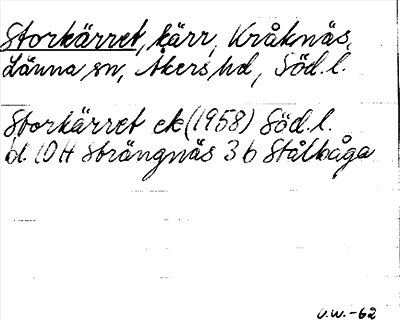 Storkärret, kärr, Kråknäs,
Länna sn, Åkers hd, Söd.l.
Storkärret ek (1958) Söd.l.
bl. 10H Strängnäs 3b Stålbåga
U.W.-62